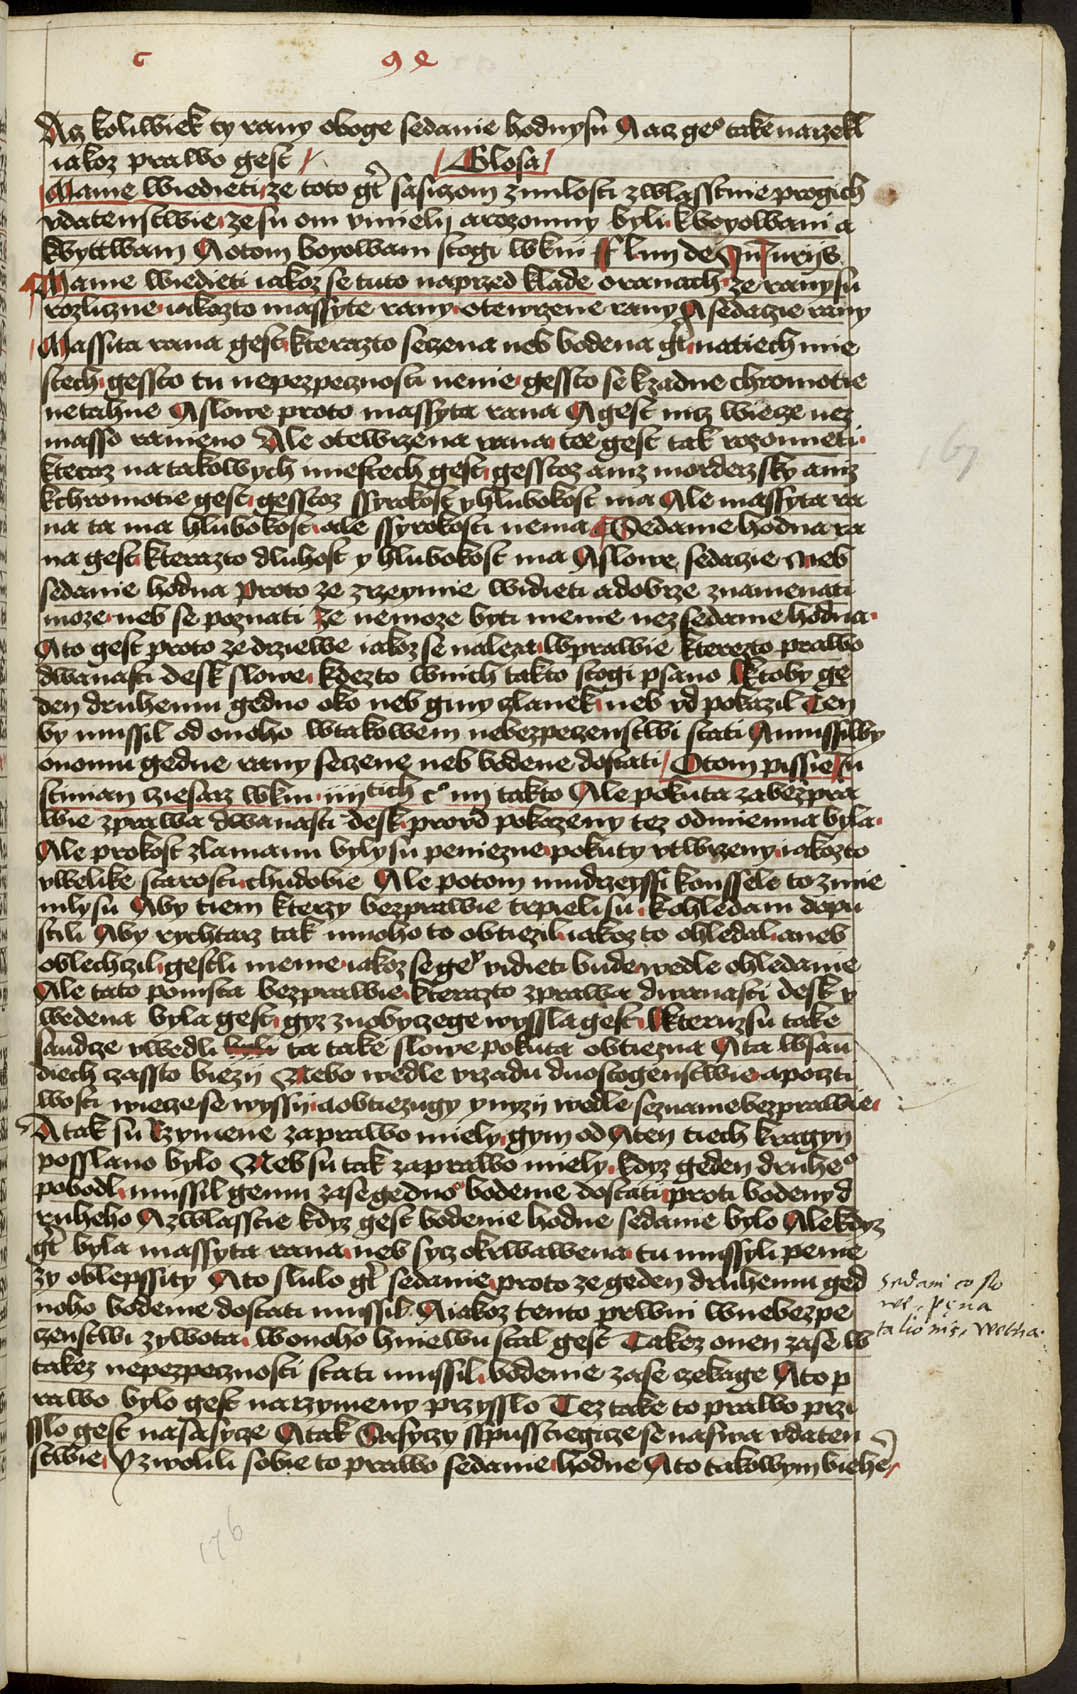 c 9 e
Acz koliwiek ty rany oboge sedanie hodny su A acz geo take narzekl
iakoz prawo gest Glosa
Mame wiedieti ze toto gt sasiczom z milosti zwlasstnie pro gich
vdatenstwie ze su oni vmielij a rozomny byli k boyowani a
Mame wiedieti iakoz se tuto naprzed klade o ranach ze rany su
rozliczne iakozto massyte rany otewrzene rany A sedaczie rany
Massita rana gest kterazto seczena neb bodena gt na tiech mie
stech gessto tu nepezpecznosti nenie gessto se k zadne chromotie
netahne A slowe proto massyta rana A gest nicz wiecze nez
masso ranieno Ale otewrzena rana tee gest tak rozomneti
kteraz na takowych miestech gest gesstoz aniz morderzsky aniz
k chromotie gest gesstoz ssyrokost y hlubokost ma Ale massyta ra
na ta ma hlubokost ale ssyrokosti nema Sedanie hodna ra
na gest kterazto dluhost y hlubokost ma A slowe sedaczie neb
sedanie hodna Proto ze zrzeymie widieti a dobrze znamenati
moze neb se poznati Ze nemoze byti menie nez sedanie hodna
A to gest proto ze drziewe iakoz se naleza w prawie kterezto prawo
dwanasti desk slowe kdezto w nich takto stogi psano Ktoby ge
den druhemu gedno oko neb giny czlanek neb vd pokazil Ten
by mussil od onoho w takowem nebezpeczenstwi stati A mussilby
onomu gedne rany seczene neb bodene dostati O tom pissie Iu
stinian cziesarz w kni iiijtich co iiij takto Ale pokuta za bezpra
wie z prawa dwanasti desk pro vd pokazeny tez odmienna byla
Ale pro kost zlamanu byly su peniezne pokuty vtwrzeny iakozto
v welike starosti chudobie Ale potom mudrzeyssi konssele to zmie
nily su Aby tiem kterzy bezprawie trpieli su k ohledani dopu
stili Aby rychtarz tak mnoho to obtiezil iakoz to ohledal aneb
oblechczil gestli menie iakoz se geo vidieti bude wedle ohledanie
Ale tato pomsta bezprawie kterazto z prawa dwanasti desk v
wedena byla gest gyz z nobyczege wyssla gest kteruzsu take
saudcze vwedli ta take slowe pokuta obtiezna A ta w sau
diech czasto biezij Nebo wedle vrzadu duostogenstwie a poczti
wosti wiecze se wyssij a obtiezugy y nyzij wedle seznanie bezprawie
A tak su Rzymene za prawo miely gym od Aten tiech kragyn
posslano bylo Neb su tak za prawo miely kdyz geden druheo
pobodl mussil gemu zase gednoo bodenie dostati proti bodeny d
ruheho A zwlasstie kdyz gest bodenie hodne sedanie bylo Ale kdyz
gt byla massyta rana neb sycz okrwawena tu mussyli penie
zy oblepssity A to slulo gt sedanie proto ze geden druhemu ged
noho bodenie dostati mussil A iakoz tento prwni w nebezpe
czenstwi zywota w onoho hniewu stal gest Takez onen zase w
takez nepezpecznosti stati mussil bodenie zase czekage A to p
rawo bylo gest na rzymeny przysslo Tez take to prawo przi
sslo gest na sasycze A tak Sasyczy spusstiegicze se na swa vdaten
stwie Y zwolili sobie to prawo sedanie hodne A to takowym biehe
sedani co slo
we pena
talionis
167
176